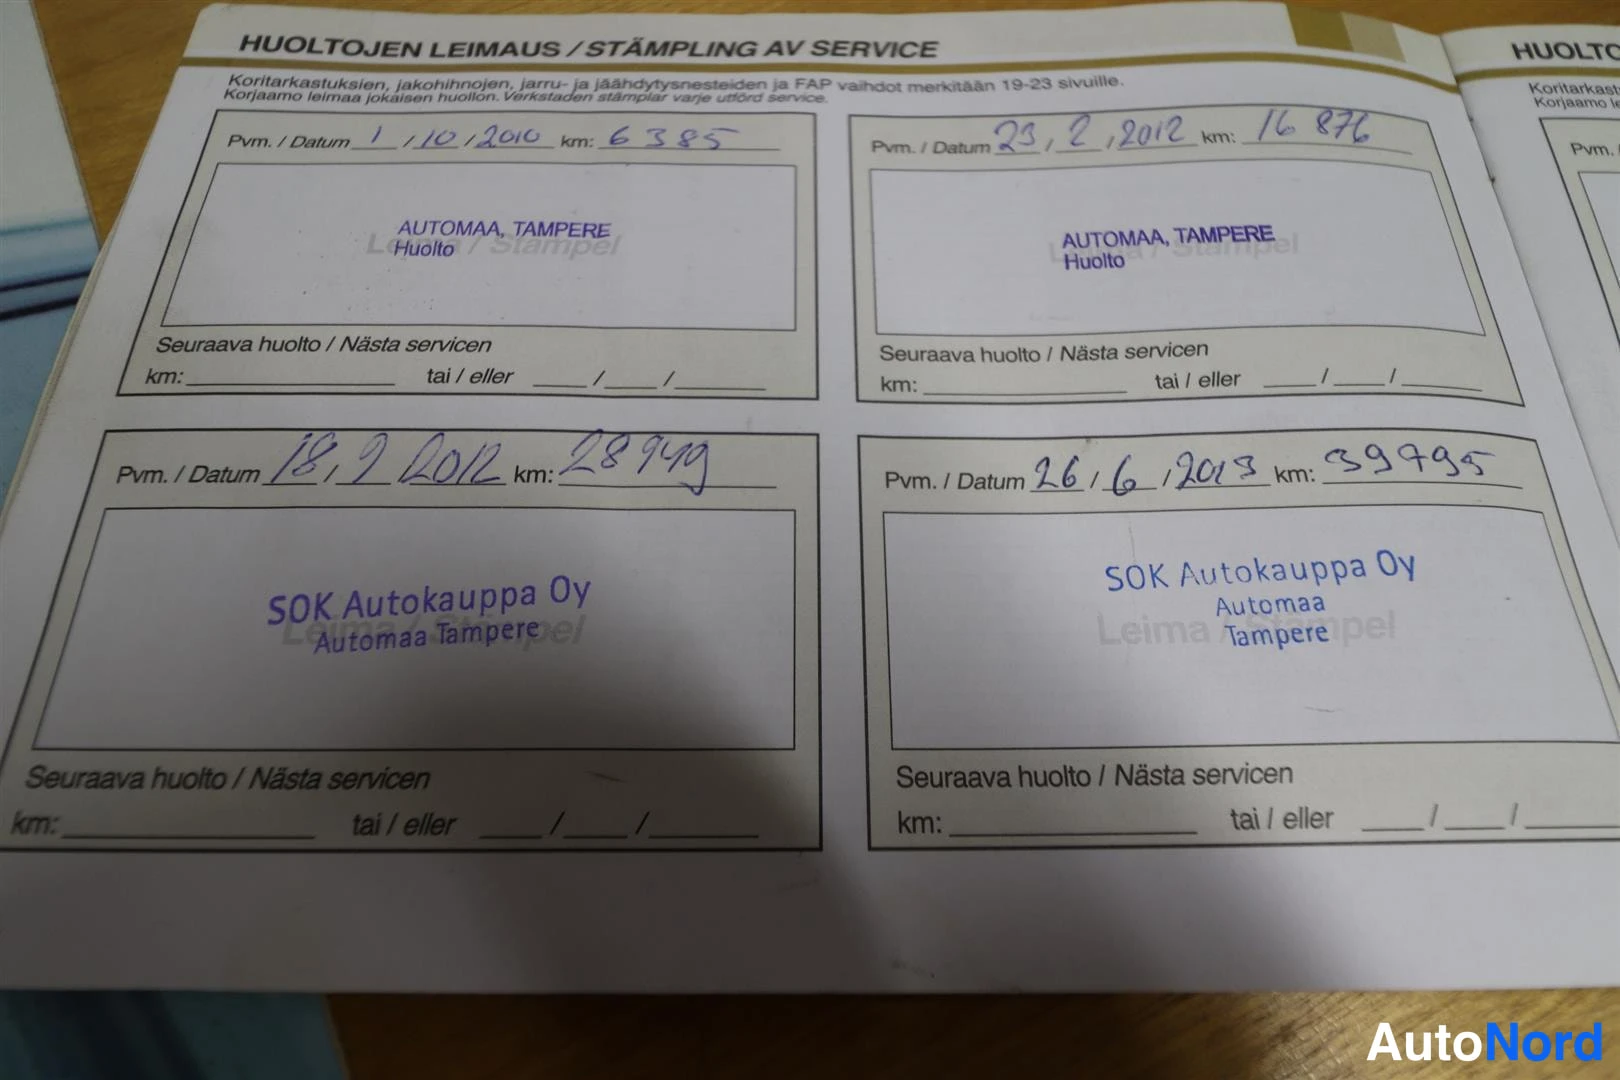 HUOLTOJEN LEIMAUS / STÄMPLING AV SERVICE
Koritarkastuksien, jakohihnojen, jarru- ja jäähdytysnesteiden ja FAP vaihdot merkitään 19-23 sivuille.
Korjaamo leimaa jokaisen huollon. Verkstaden stämplar varje utförd service.
Pvm. / Datum 1 / 10 / 2010 km: 6385
Leima / Stämpel
AUTOMAA, TAMPERE
Huolto
Seuraava huolto / Nästa servicen
km: tai / eller / /
Pvm. / Datum 23 / 2 / 2012 km: 16 876
Leima / Stämpel
AUTOMAA, TAMPERE
Huolto
Seuraava huolto / Nästa servicen
km: tai / eller / /
Pvm. / Datum 18 / 9 / 2012 km: 28949
Leima / Stämpel
SOK Autokauppa Oy
Automaa Tampere
Seuraava huolto / Nästa servicen
km: tai / eller / /
Pvm. / Datum 26 / 6 / 2013 km: 39795
Leima / Stämpel
SOK Autokauppa Oy
Automaa
Tampere
Seuraava huolto / Nästa servicen
km: tai / eller / /
HUOLTO
Koritarkast
Korjaamo le
Pvm. /
AutoNord